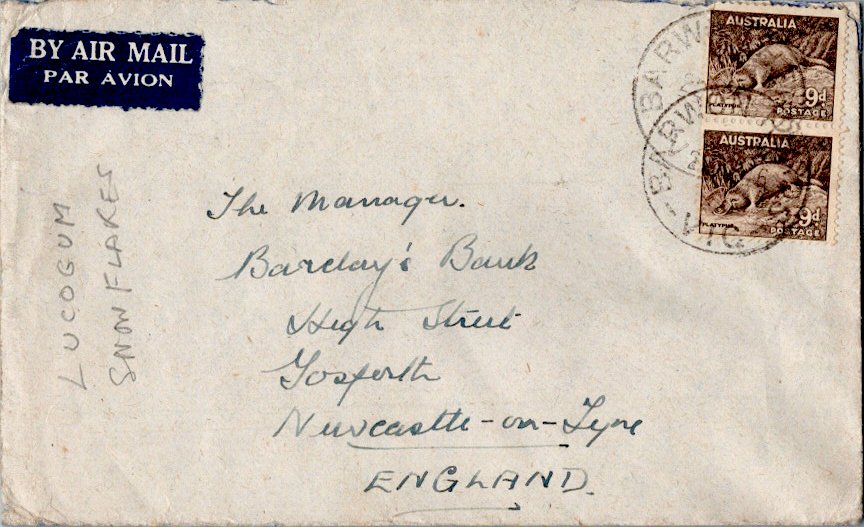 BY AIR MAIL
PAR AVION
AUSTRALIA
PLATYPUS
9d
POSTAGE
AUSTRALIA
PLATYPUS
9d
POSTAGE
VIC
The Manager.
Barclay's Bank
High Street
Gosforth
Newcastle-on-Tyne
ENGLAND.
LUCOGUM
SNOWFLAKES